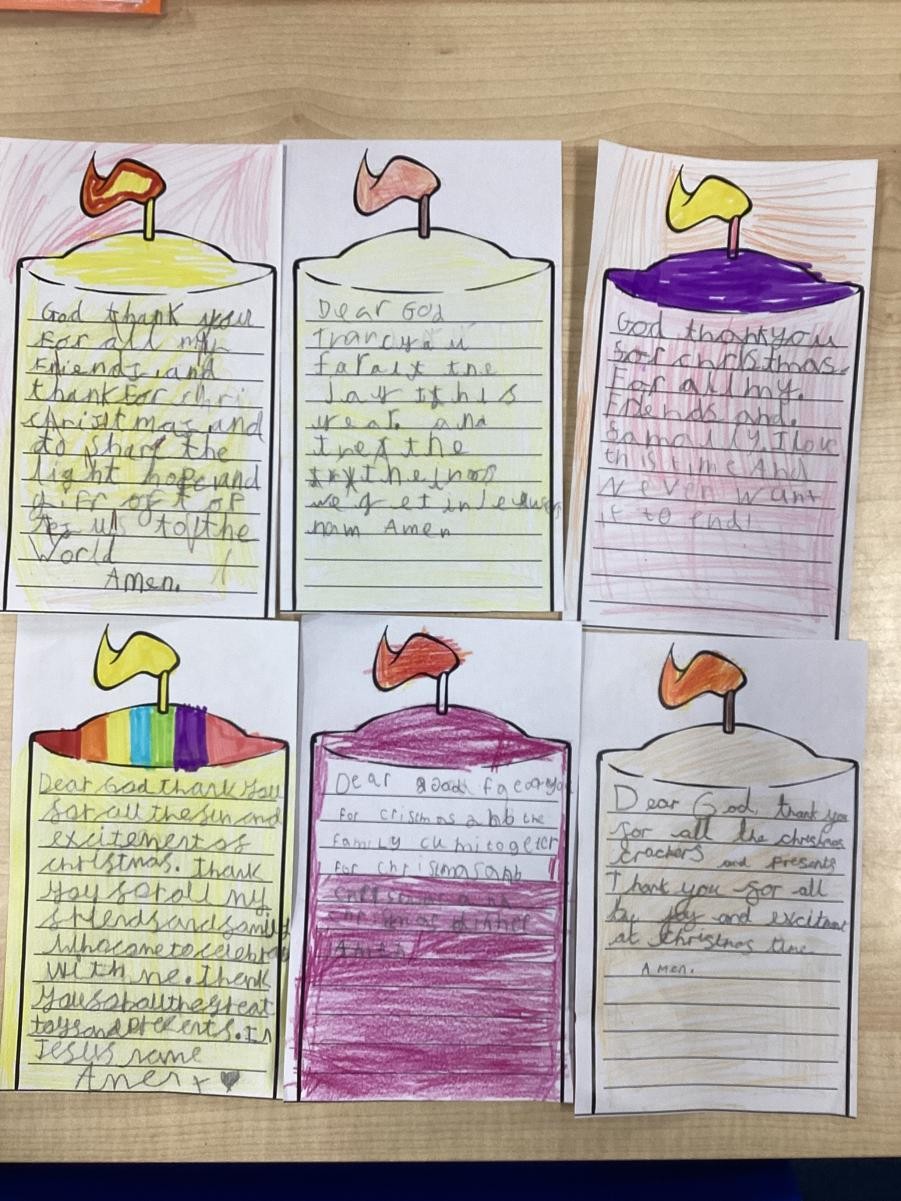 God thank you
For all my
Friends and
thank For chri
christmas and
to share the
light hope and
giff of t of
Jesus to the
World
Amen.
Dear God
Trancyou
the
this
year. and
the
we get in
nam Amen
God thankyou
for christmas
For all my.
Friends and.
Samaliy. I love
this time And
Never want
it to end!
Dear God thank you
for all the sun and
excitement of
christmas. Thank
you for all my
friends and family
who come to celebrate
with me. Thank
you for all the great
toys and presents. In
Jesus name
Amen x
Dear
For crismas anb the
family cumitogeter
For chrismasanb
dinner
Amen
Dear God, thank you
for all the christmas
crackers and presents
Thank you for all
joy and excitment
at christmas time
Amen.